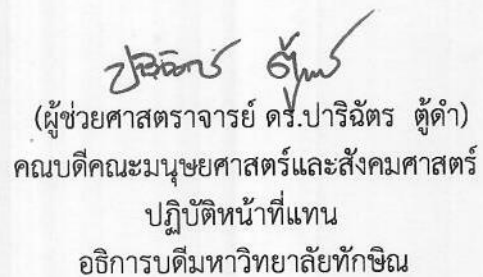 (ผู้ช่วยศาสตราจารย์ ดร.ปาริฉัตร ตู้ดำ)
คณบดีคณะมนุษยศาสตร์และสังคมศาสตร์
ปฏิบัติหน้าที่แทน
อธิการบดีมหาวิทยาลัยทักษิณ